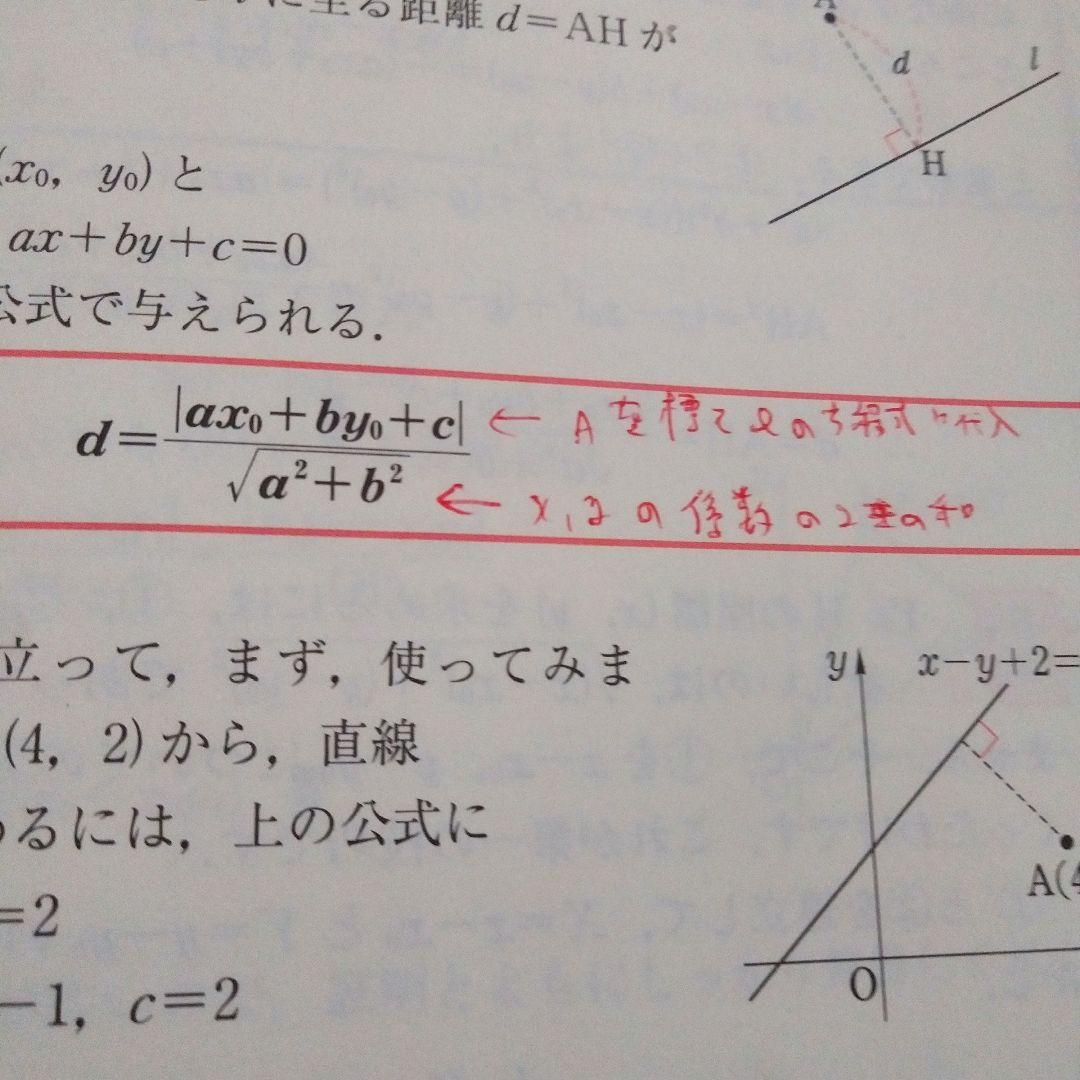 至る距離 d=AHが
A
d
l
H
(x₀, y₀) と
ax+by+c=0
公式で与えられる.
d=|ax₀+by₀+c|/√a²+b² ← Aを lの方程式に代入
← x, yの係数の2乗の和
立って, まず, 使ってみま
(4, 2) から, 直線
るには, 上の公式に
=2
−1, c=2
y
x−y+2=
A(4
O